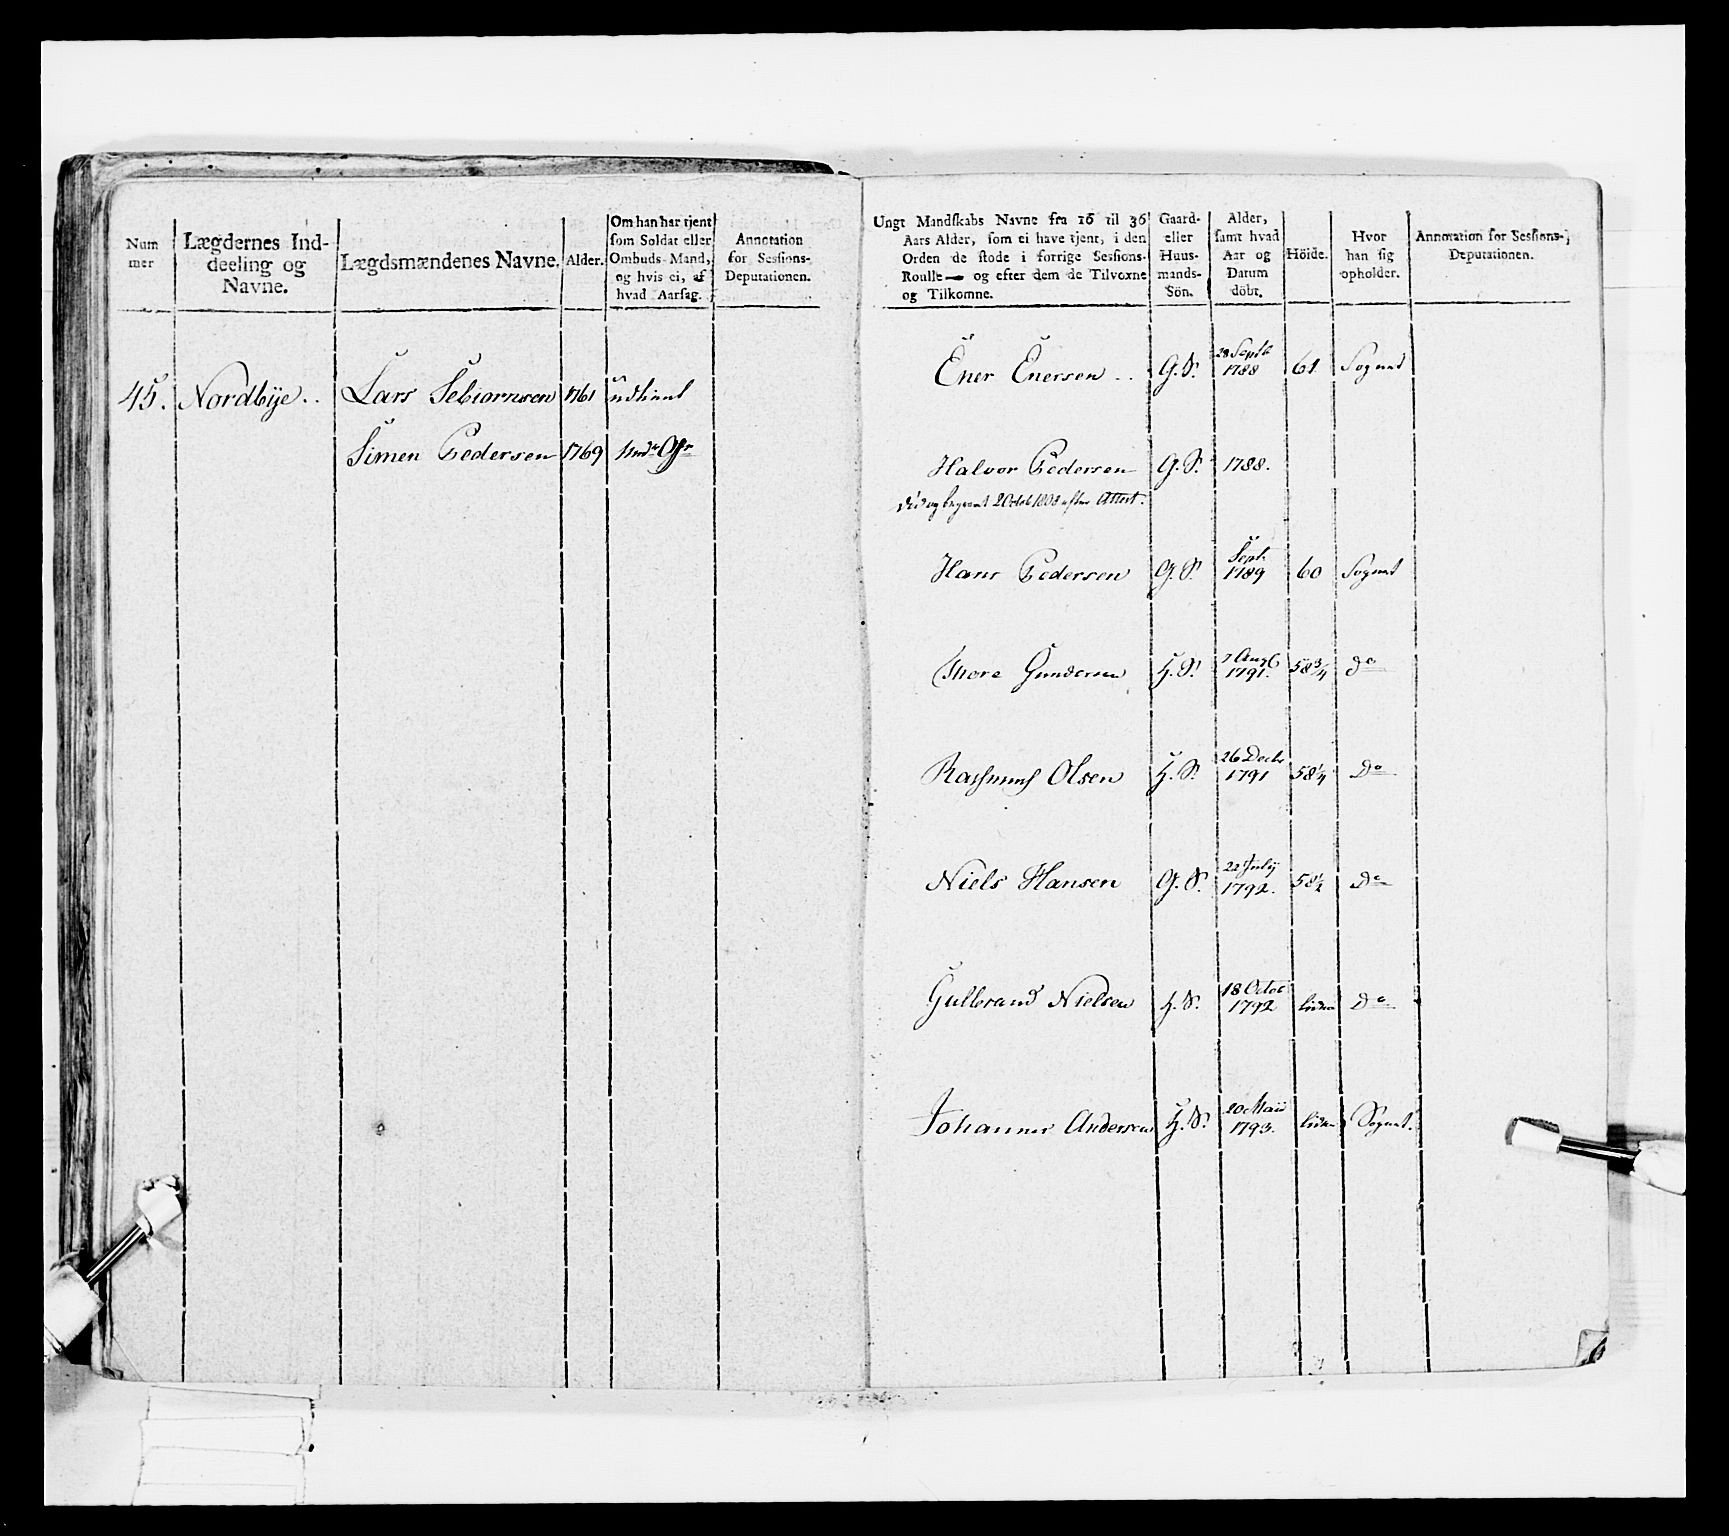 Num
mer
Lægdernes Ind-
deeling og
Navne.
Lægdsmændenes Navne.
Alder.
Om han har tjent
som Soldat eller
Ombuds-Mand,
og hvis ei, af
hvad Aarsag.
Annotation
for Sessions-
Deputationen.
45. Nordbye.. Lars Sebiörnsen 1761 udtient
Simen Pedersen 1769
Ungt Mandskabs Navne fra 16 til 36
Aars Alder, som ei have tjent, i den
Orden de stode i forrige Sessions-
Roulle — og efter dem de Tilvoxne
og Tilkomne.
Gaard-
eller
Huus-
mands-
Sön.
Alder,
samt hvad
Aar og
Datum
döbt.
Höide.
Hvor
han sig
opholder.
Annotation for Sessions-
Deputationen.
Ener Enersen .. G.S. 28 Septb 1788 61 Sognet
Halvor Pedersen G.S. 1788.
död og begravet 2 Octob 1808 efter Attest.
Hans Pedersen G.S. Sept. 1789 60 Sognet
Thore Gundersen H.S. 7 Aug 1791. 58 3/4 do
Rasmus Olsen H.S. 26 Decbr 1791 58 1/4 Do
Niels Hansen G.S. 22 July 1792. 58 1/2 Do
Gulbrand Nielsen H.S. 18 Octob 1792 liden Do
Johannes Andersen H.S. 20 Maii 1793. liden Sognet.